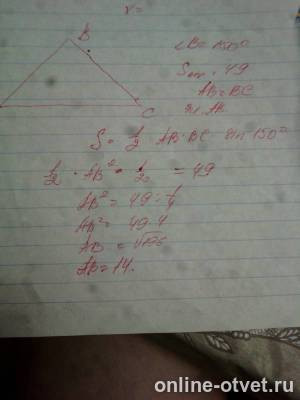 r =
B
C
∠B = 150°
S = 49
AB = BC
AB
S = 1/2 AB · BC sin 150°
1/2 · AB² · 1/2 = 49
AB² = 49 : 1/4
AB² = 49 · 4
AB = √196
AB = 14.
online-otvet.ru